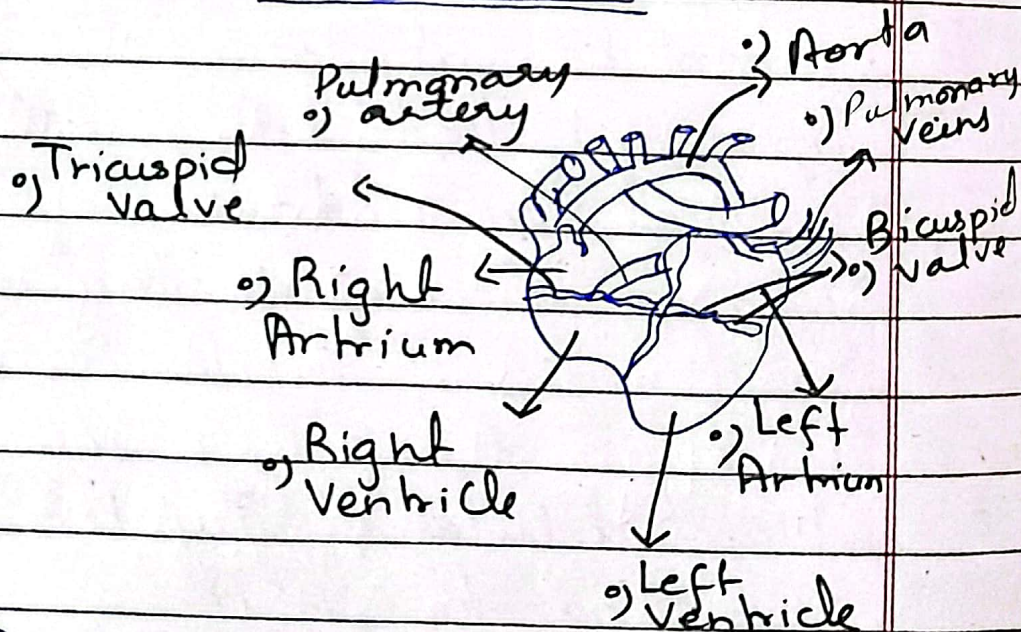 °) Aorta
Pulmonary
°) artery
°) Pulmonary
veins
°) Tricuspid
valve
Bicuspid
°) valve
°) Right
Artrium
°) Left
Artrium
°) Right
Ventricle
°) Left
Ventricle